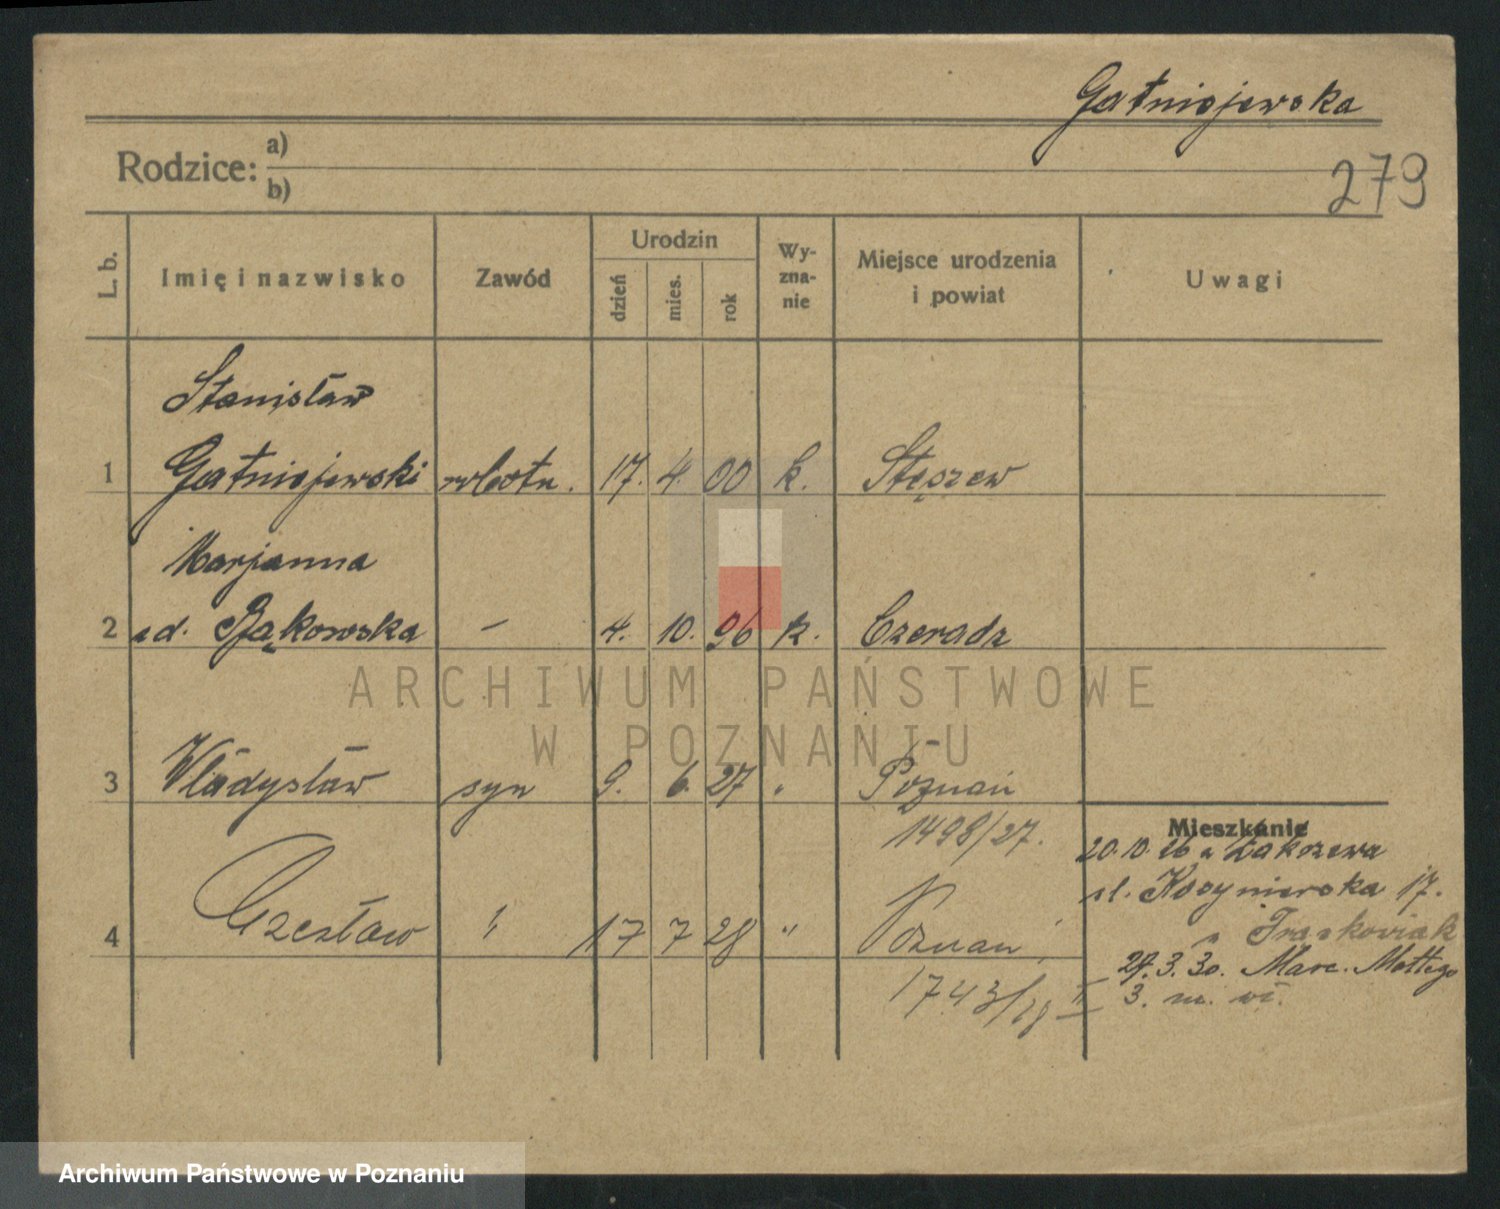 Gatniejewska
279
Rodzice: a)
b)
L. b.
Imię i nazwisko
Zawód
Urodzin
dzień
mies.
rok
Wy-
zna-
nie
Miejsce urodzenia
i powiat
Uwagi
Stanisław
1 Gatniejewski robotn. 17. 4. 00 k. Stęszew
Marjanna
2 Bąkowska – 4. 10. 96 k. Czeradz
ARCHIWUM PAŃSTWOWE
W POZNANIU
3 Władysław syn 9. 6. 27 " Poznań
1498/27.
Mieszkanie
20.10.26 Żakrzewa
ul. 17.
4 Czesław " 17 7 28 " Poznań
1743/28 II
29.3.30. Marc. Mottego
3. m.
Archiwum Państwowe w Poznaniu